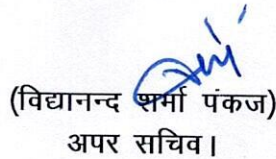 (विद्यानन्द शर्मा पंकज)
अपर सचिव।